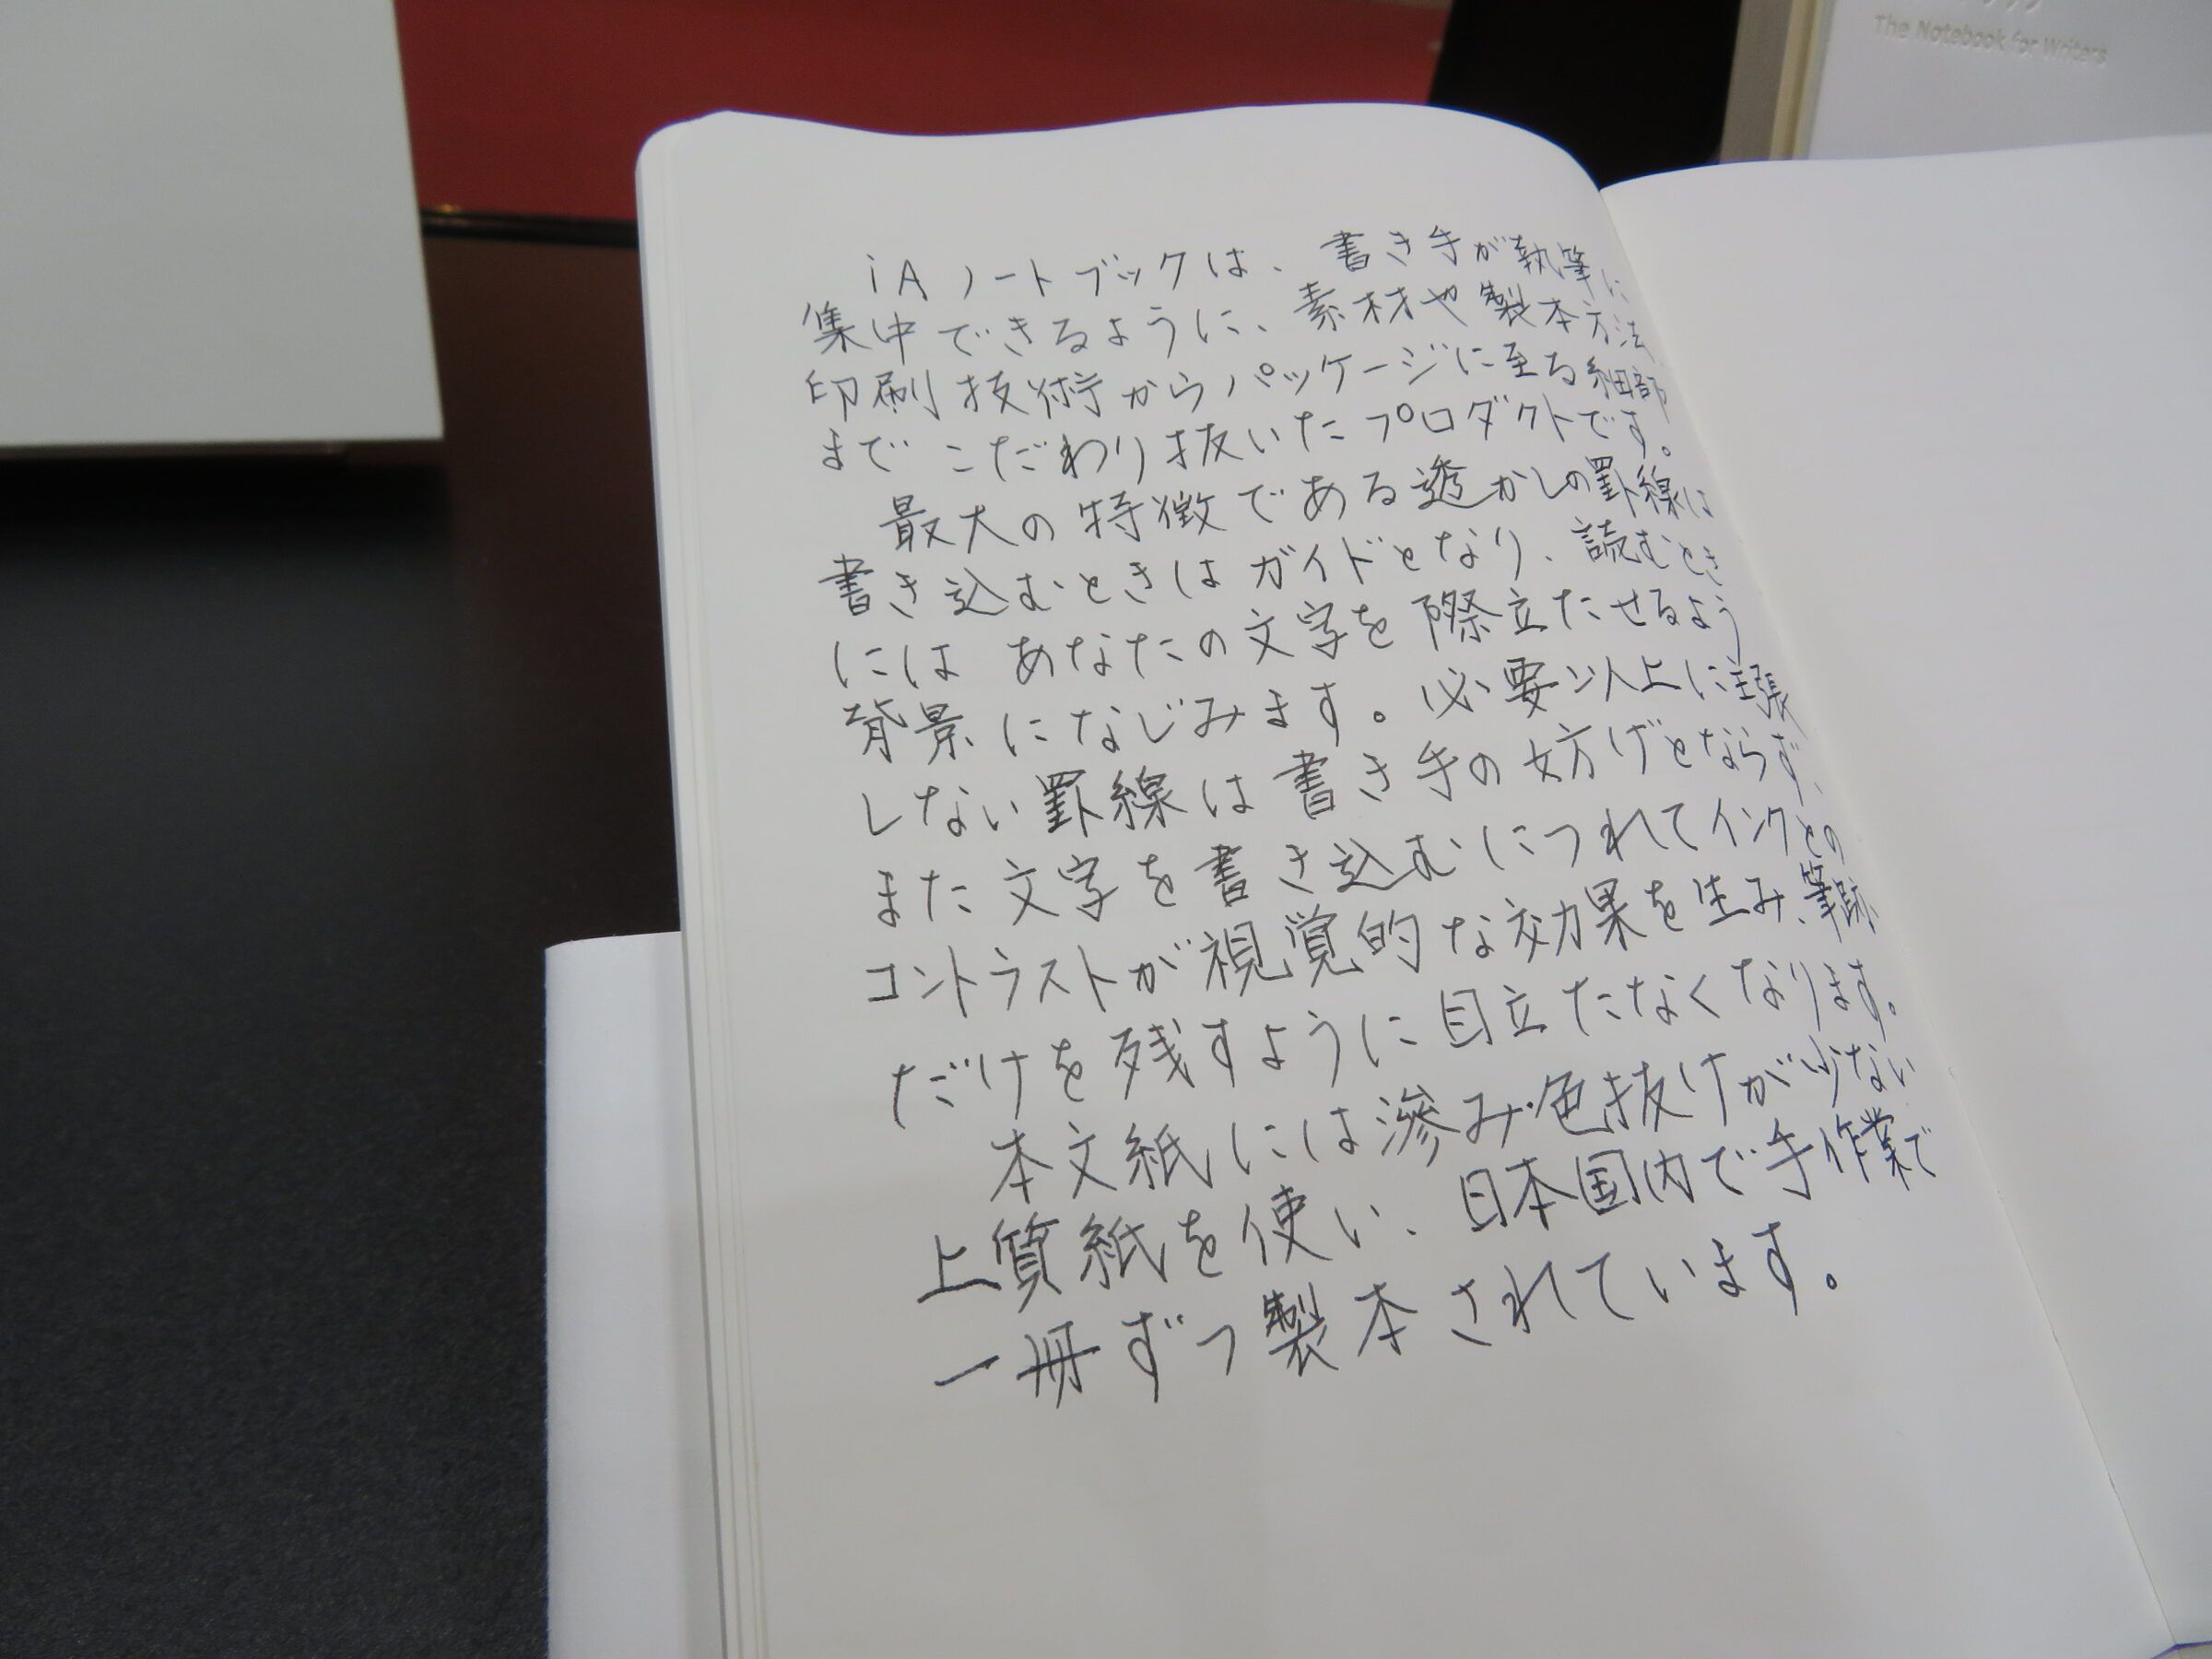 The Notebook for Writers
iAノートブックは、書き手が執筆に
集中できるように、素材や製本方法
印刷技術からパッケージに至る細部
までこだわり抜いたプロダクトです。
最大の特徴である透かしの罫線は
書き込むときはガイドとなり、読むとき
にはあなたの文字を際立たせるよう
背景になじみます。必要以上に主張
しない罫線は書き手の妨げとならず、
また文字を書き込むにつれてインクとの
コントラストが視覚的な効果を生み、筆跡
だけを残すように目立たなくなります。
本文紙には滲み・色抜けが少ない
上質紙を使い、日本国内で手作業で
一冊ずつ製本されています。